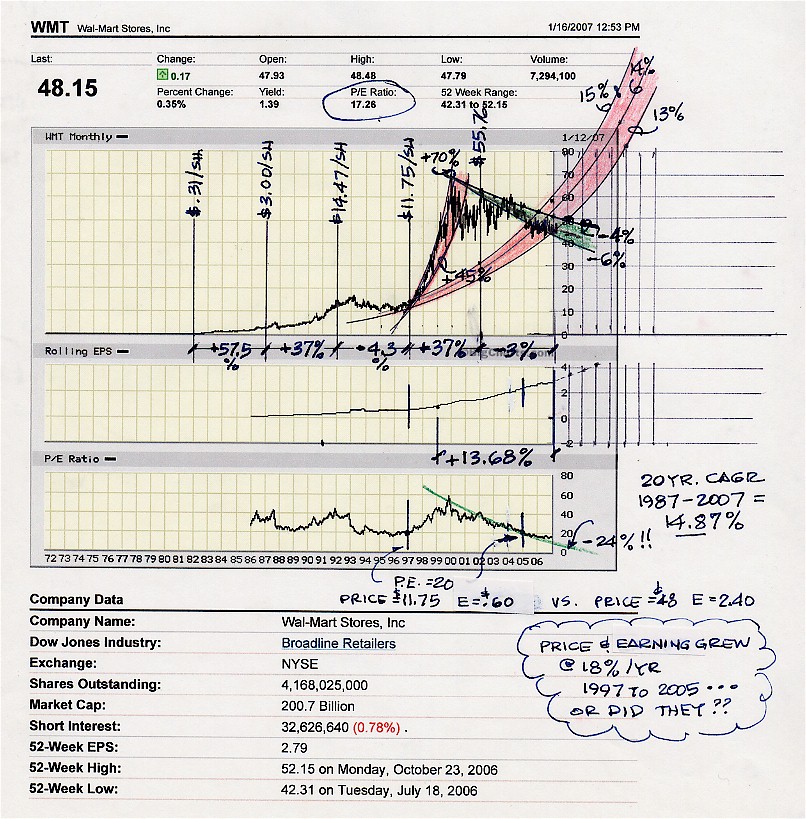 WMT Wal-Mart Stores, Inc 1/16/2007 12:53 PM
Last: Change: Open: High: Low: Volume:
48.15 0.17 47.93 48.48 47.79 7,294,100
Percent Change: Yield: P/E Ratio: 52 Week Range:
0.35% 1.39 17.26 42.31 to 52.15
15% & 14%
13%
WMT Monthly 1/12/07
$.31/SH $3.00/SH $14.47/SH $11.75/SH $55.76
+70%
+45%
-4%
-6%
80
70
60
50
40
30
20
10
0
+57.5% +37% -4.3% +37% -3%
Rolling EPS
4
2
0
-2
+13.68%
P/E Ratio
80
60
40
20
0
-24%!!
20YR. CAGR
1987-2007 =
14.87%
72 73 74 75 76 77 78 79 80 81 82 83 84 85 86 87 88 89 90 91 92 93 94 95 96 97 98 99 00 01 02 03 04 05 06
P.E. = 20
PRICE $11.75 E = $.60 VS. PRICE = $48 E = 2.40
Company Data
Company Name: Wal-Mart Stores, Inc
Dow Jones Industry: Broadline Retailers
Exchange: NYSE
Shares Outstanding: 4,168,025,000
Market Cap: 200.7 Billion
Short Interest: 32,626,640 (0.78%) .
52-Week EPS: 2.79
52-Week High: 52.15 on Monday, October 23, 2006
52-Week Low: 42.31 on Tuesday, July 18, 2006
PRICE & EARNING GREW
@ 18%/YR
1997 TO 2005 ...
OR DID THEY ??